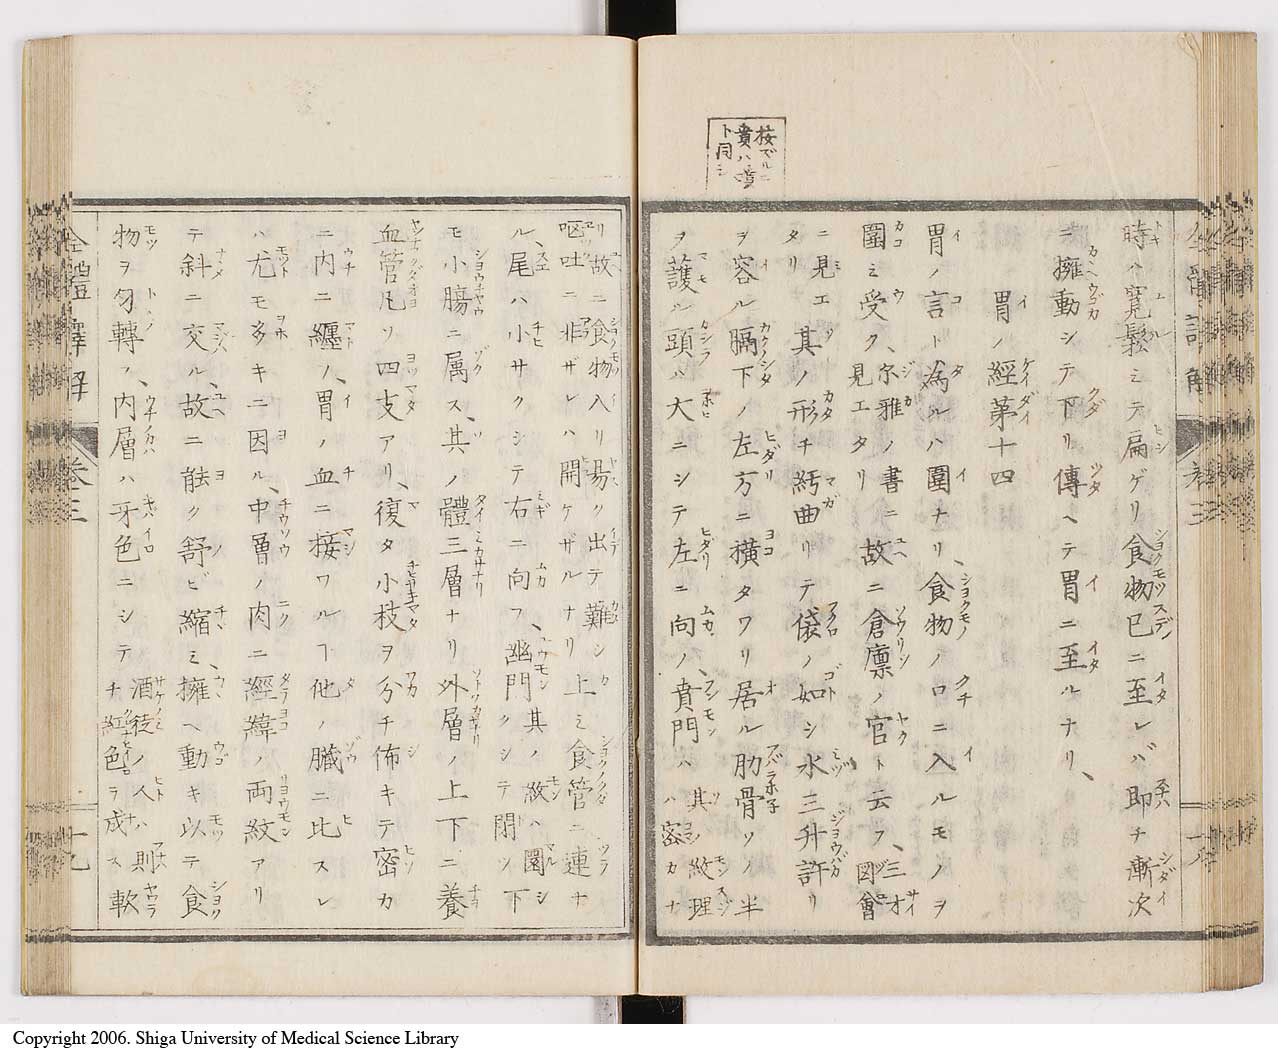 按ズルニ
賁ハ噴
ト同シ
時ハ寛鬆ミテ扁ゲリ食物已ニ至レバ即チ漸次
ニ擁動シテ下リ傳ヘテ胃ニ至ルナリ、
胃ノ經第十四
胃ノ言トハ為ルハ圍ナリ、食物ノ口ニ入ルモノヲ
圍ミ受ク、尓雅ノ書ニ見エタリ故ニ倉廩ノ官ト云フ、三才図會
ニ見エタリ其ノ形チ紆曲リテ袋ノ如シ水三升許リ
ヲ容ル膈下ノ左方ニ横タワリ居ル肋骨ソノ半
ヲ護ル頭ハ大ニシテ左ニ向ノ、賁門ハ其ノ紋理ハ密カナ
リ故ニ食物入リ易ク出テ難シ
嘔吐ニ非ザレハ開ケザルナリ上ミ食管ニ連ナ
ル、尾ハ小サクシテ右ニ向フ、幽門其ノ紋ハ圓シクシテ閉ツ下
モ小膓ニ属ス、其ノ體三層ナリ外層ノ上下ニ養
血管凡ソ四支アリ、復タ小枝ヲ分チ佈キテ密カ
ニ内ニ纏ノ、胃ノ血ニ接ワルヿ他ノ臓ニ比スレ
ハ尤モ多キニ因ル、中層ノ肉ニ經緯ノ両紋アリ
テ斜ニ交ル、故ニ能ク舒ビ縮ミ、擁ヘ動キ以テ食
物ヲ匀轉ノ、内層ハ牙色ニシテ酒徒ノ人ハ則チ紅色ヲ成ス軟
全體譯解
巻三
十九
Copyright 2006. Shiga University of Medical Science Library